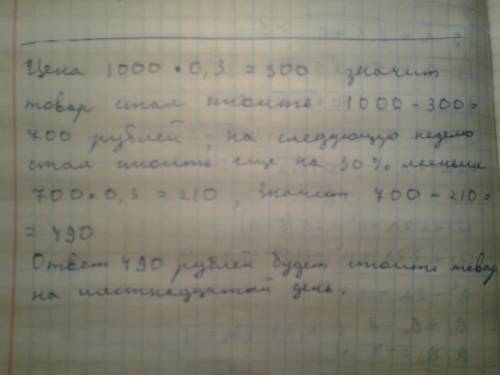 Цена 1000 • 0,3 = 300 значит
товар стал стоить 1000 - 300 =
700 рублей, на следующую неделю
стал стоить еще на 30% меньше
700 • 0,3 = 210, Значит 700 - 210 =
= 490
Ответ 490 рублей будет стоить товар
на шестнадцатый день.